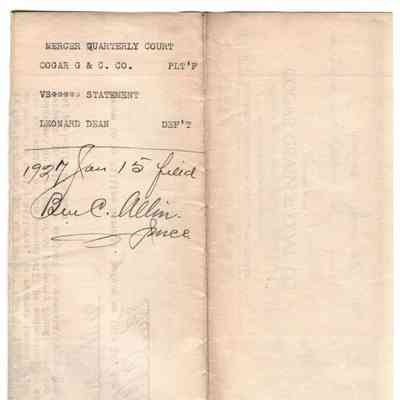 MERCER QUARTERLY COURT
COGAR G & C. CO. PLT'F
VE***** STATEMENT
LEONARD DEAN DEF'T
1927 Jan 15 filed
Ben C. Allin